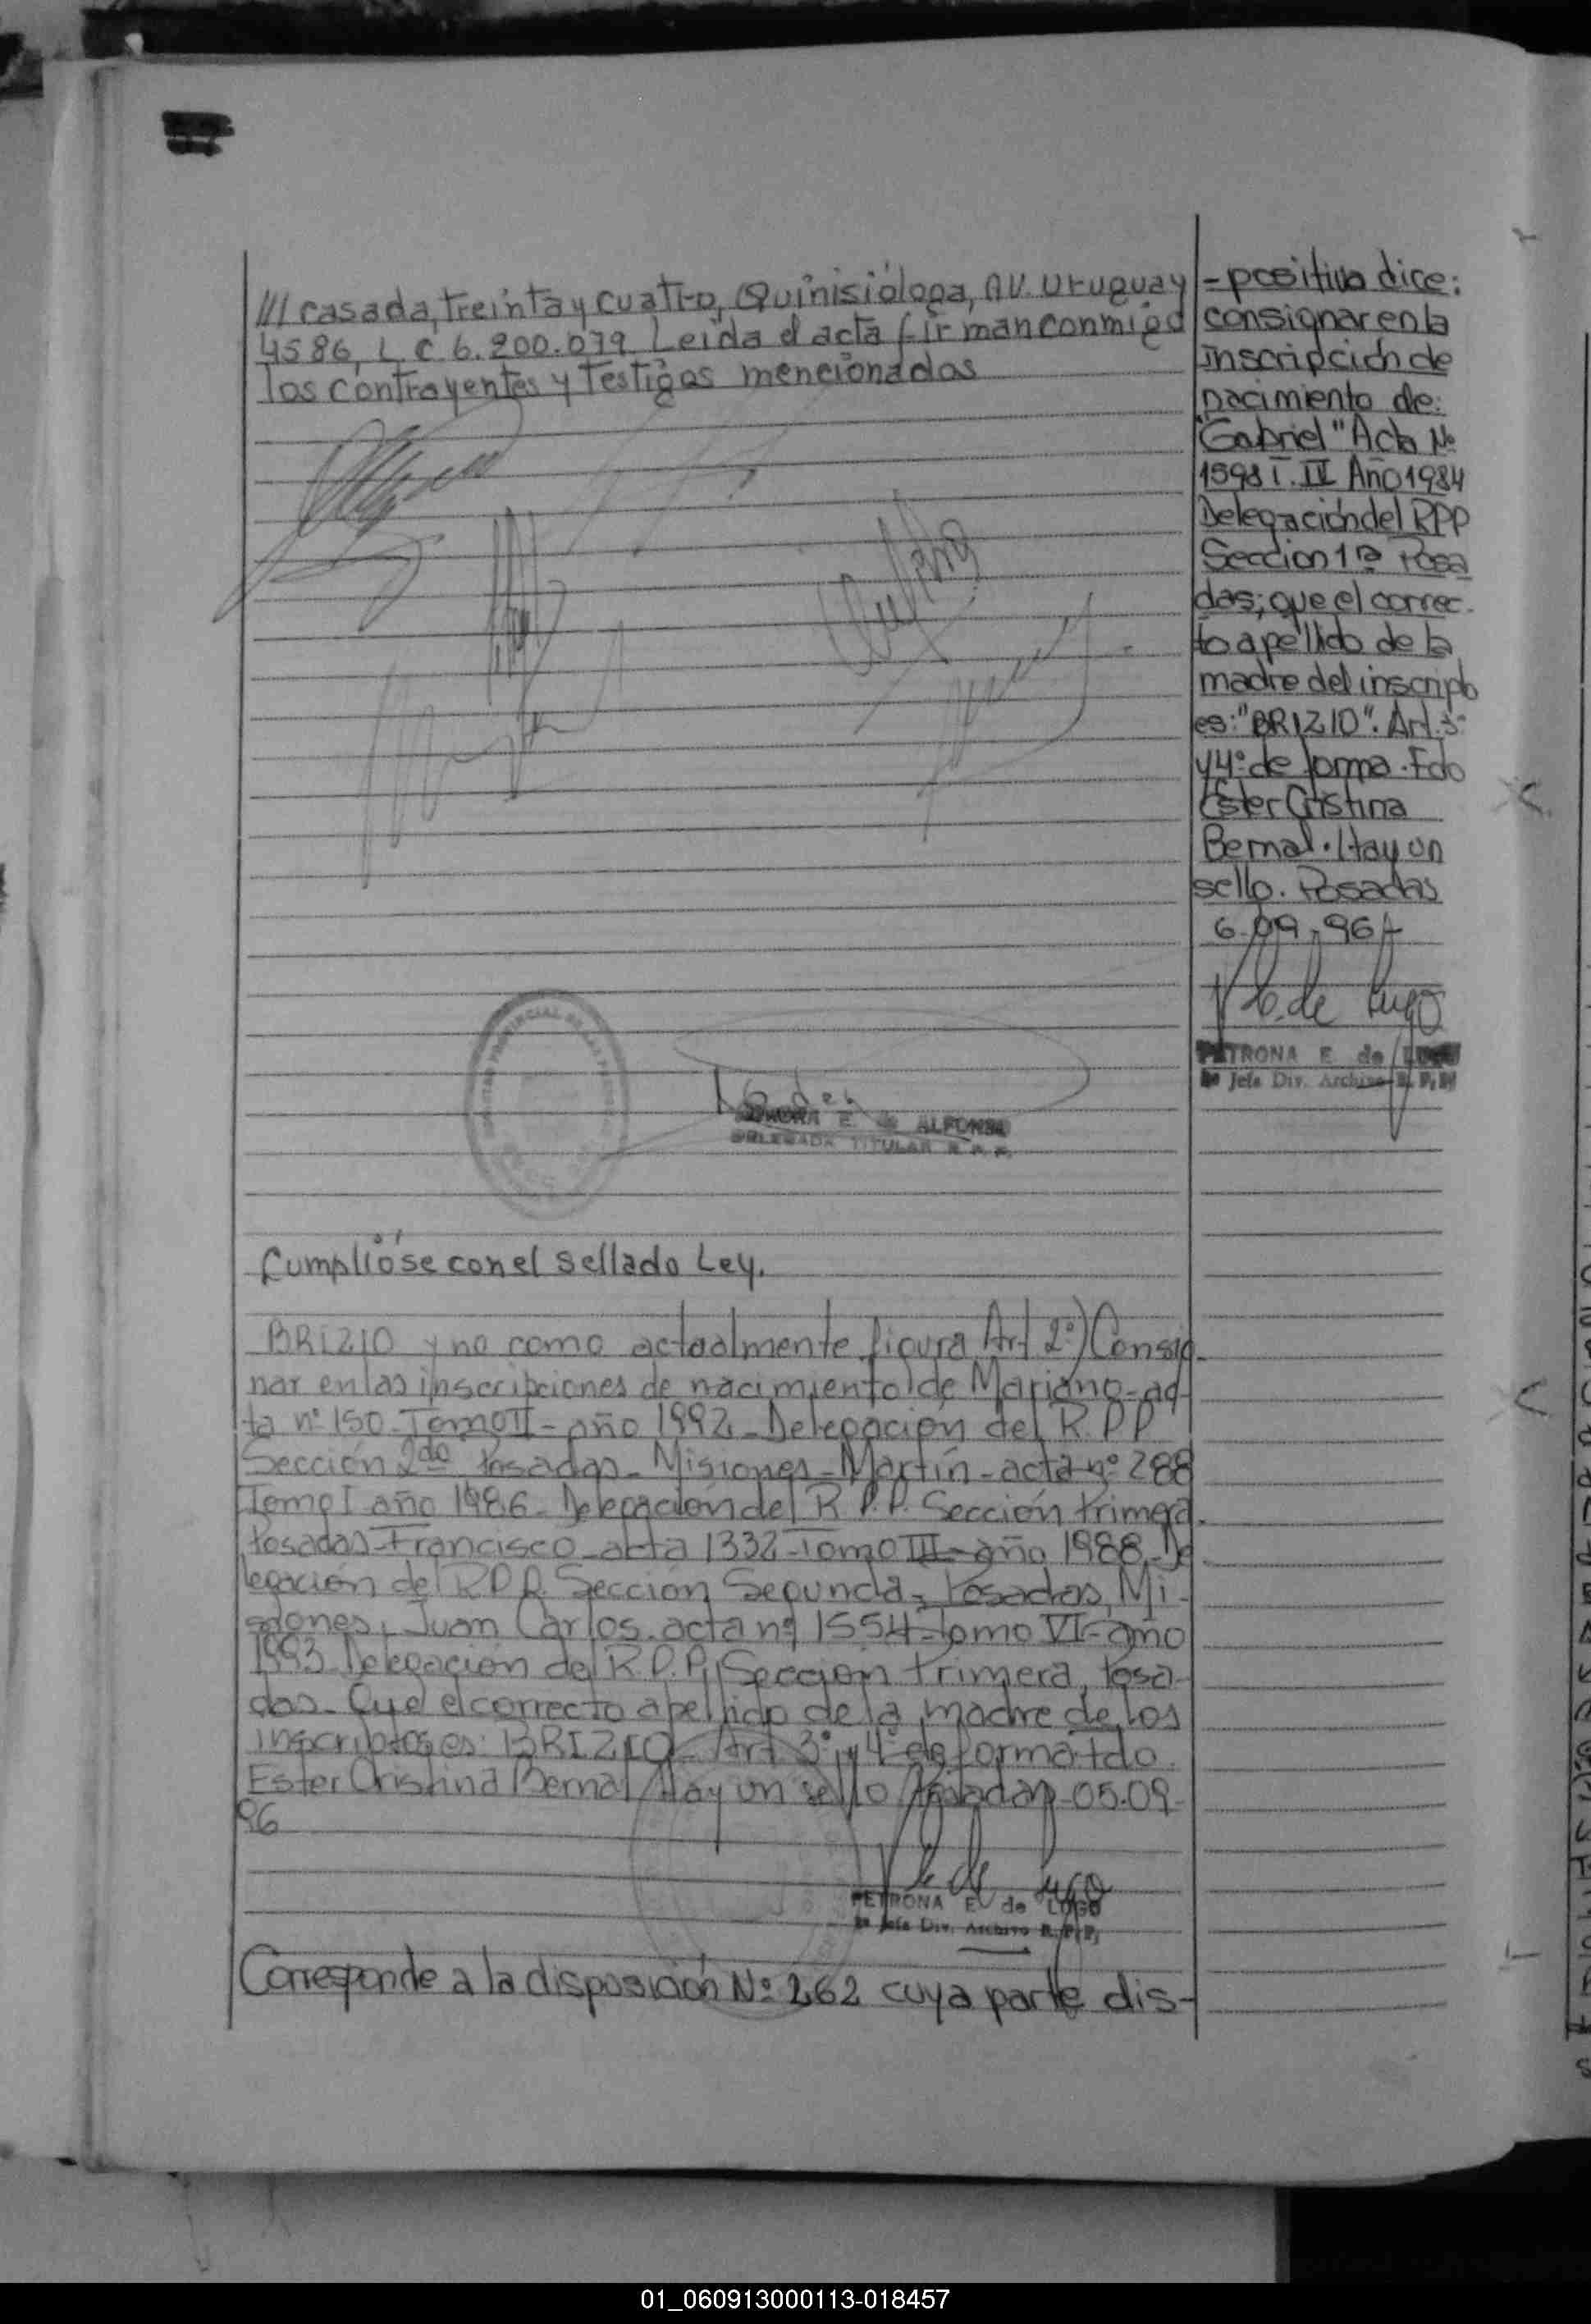 /// casada, treinta y cuatro, Quinisióloga, AV. Uruguay
4586, L.C 6.200.079 Leída el acta firman conmigo
los contrayentes y testigos mencionados
E. de ALFONSO
DELEGADA TITULAR R. P. P.
Cumplióse con el sellado Ley.
BRIZIO y no como actualmente figura Art 2º) Consig-
nar en las inscripciones de nacimiento de Mariano-ac-
ta nº 150 Tomo II - año 1992 - Delegación del R.P.P
Sección 2da Posadas - Misiones - Martín - acta nº 288
Tomo I año 1986 - Delegación del R.P.P. Sección Primera.
Posadas - Francisco - acta 1332 - Tomo III - año 1988 - De
legación del R.P.P. Sección Segunda, Posadas, Mi-
siones, Juan Carlos. acta nº 1554 - Tomo VI - año
1993 Delegación del R.P.P. Sección Primera, Posa-
das. Que el correcto apellido de la madre de los
inscriptos es: BRIZIO - Art. 3º y 4º de forma. Fdo.
Ester Cristina Bernal Hay un sello Posadas - 05.09-
96
PETRONA E. de LUGO
Jefe Div. Archivo R. P. P.
Corresponde a la disposición Nº 262 cuya parte dis-
-positiva dice:
consignar en la
inscripción de
nacimiento de:
"Gabriel" Acta Nº
1598 T. II Año 1984
Delegación del RPP
Seccion 1ra Posa
das; que el correc-
to apellido de la
madre del inscripto
es: "BRIZIO". Art. 3º
y 4º de forma. Fdo
Ester Cristina
Bernal. Hay un
sello. Posadas
6-09-96
P E. de Lugo
PETRONA E. de LUGO
Jefe Div. Archivo R. P. P.
01_060913000113-018457